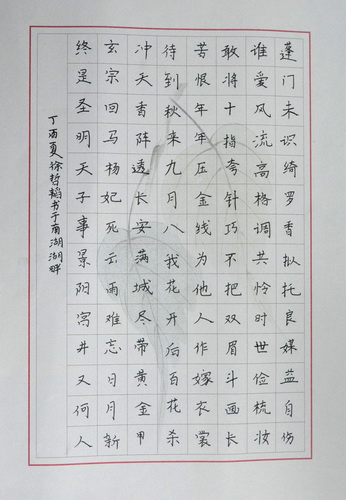 蓬门未识绮罗香拟托良媒益自伤
谁爱风流高格调共怜时世俭梳妆
敢将十指夸针巧不把双眉斗画长
苦恨年年压金线为他人作嫁衣裳
待到秋来九月八我花开后百花杀
冲天香阵透长安满城尽带黄金甲
玄宗回马杨妃死云雨难忘日月新
终是圣明天子事景阳宫井又何人
丁酉夏徐哲韬书于南湖湖畔